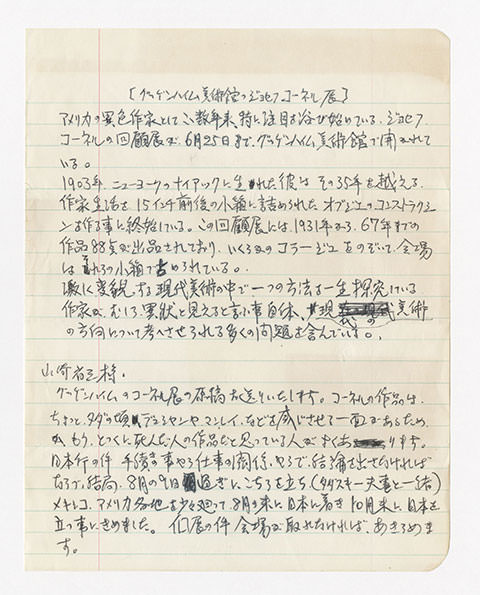 [グッゲンハイム美術館のジョセフ・コーネル展]
アメリカの異色作家としてこゝ数年来、特に注目を浴び始めている、ジョセフ
コーネルの回顧展が、6月25日まで、グッゲンハイム美術館で開かれて
いる。
1903年、ニューヨークのナイアックに生れた彼は その35年を越える
作家生活を 15インチ前後の小箱に詰められた オブジェのコンストラクション
を作る事に終始している。この回顧展には、1931年から、67年までの
作品88点が出品されており、いくつかの コラージュ をのぞいて、会場
は これらの小箱で占められている。
激に変貌する現代美術の中で一つの方法を一生探究している
作家が、むしろ異状と見えると言う事自体、現代美術
の方向について考へさせられる多くの問題を含んでいる。
山崎省三様。
グッゲンハイムのコーネル展の原稿お送りいたします。コーネルの作品は、
ちょっと、ダダの頃、デュシャンや、マンレイ、などを感じさせる一面があるため
か、もう、とっくに死んだ人の作品だと思っている人がずいぶんあります。
日本行の件 手続きの事やら仕事の関係、やらで、結論を出さなければ
ならず、結局、8月の9日過ぎに、こちらを立ち、(タジスキー夫妻と一緒)
メキシコ、アメリカ各地を少々廻って、8月の末に日本に着き 10月末に、日本を
立つ事にきめました。 個展の件 会場が取れなければ、あきらめま
す。